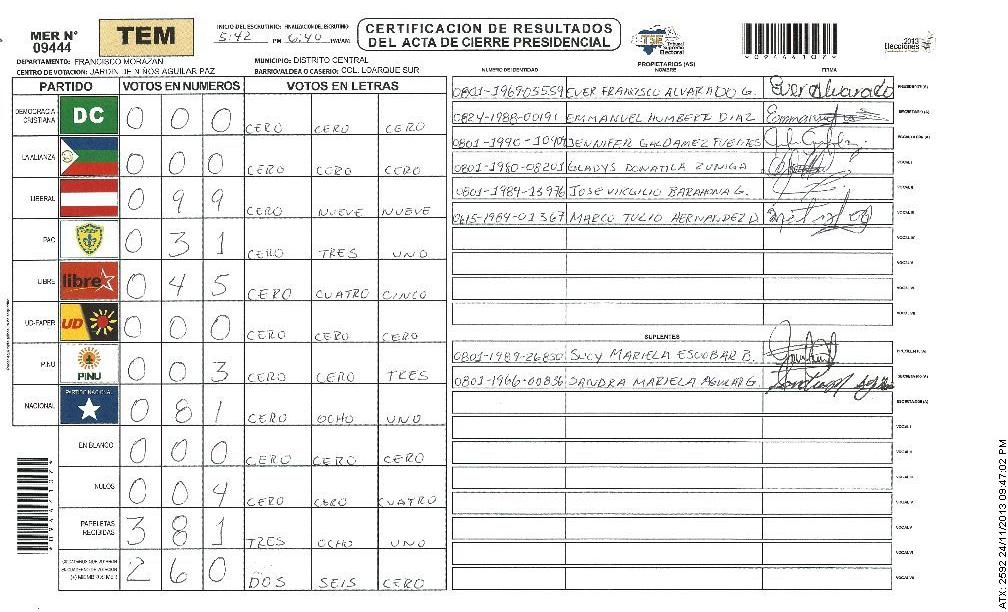 MER N° 09444
TEM
INICIO DEL ESCRUTINIO: 5:42 PM FINALIZACION DEL ESCRUTINIO: 6:40 PM/AM
CERTIFICACION DE RESULTADOS
DEL ACTA DE CIERRE PRESIDENCIAL
TSE Tribunal Supremo Electoral
2013 Elecciones
DEPARTAMENTO: FRANCISCO MORAZAN MUNICIPIO: DISTRITO CENTRAL
CENTRO DE VOTACION: JARDIN DE NIÑOS AGUILAR PAZ BARRIO/ALDEA O CASERIO: COL. LOARQUE SUR
PROPIETARIOS (AS)
NUMERO DE IDENTIDAD NOMBRE FIRMA
PARTIDO VOTOS EN NUMEROS VOTOS EN LETRAS
DEMOCRACIA CRISTIANA DC 0 0 0 CERO CERO CERO
LA ALIANZA 0 0 0 CERO CERO CERO
LIBERAL 0 9 9 CERO NUEVE NUEVE
PAC 0 3 1 CERO TRES UNO
LIBRE libre 0 4 5 CERO CUATRO CINCO
UD-FAPER UD 0 0 0 CERO CERO CERO
PINU PINU 0 0 3 CERO CERO TRES
NACIONAL PARTIDO NACIONAL 0 8 1 CERO OCHO UNO
EN BLANCO 0 0 0 CERO CERO CERO
NULOS 0 0 4 CERO CERO CUATRO
PAPELETAS RECIBIDAS 3 8 1 TRES OCHO UNO
2 6 0 DOS SEIS CERO
0801-1969-05559 EVER FRANCISCO ALVARADO G. Ever Alvarado PRESIDENTE(A)
0824-1988-00191 EMMANUEL HUMBERT DIAZ SECRETARIO(A)
JENNIFER GALDAMEZ FUENTES ESCRUTADOR(A)
0801-1980-08201 GLADYS DONATILA ZUNIGA VOCAL I
0801-1984-13976 JOSE VIRGILIO BARAHONA G. VOCAL II
0615-1984-01367 MARCO TULIO HERNANDEZ D. VOCAL III
VOCAL IV
VOCAL V
VOCAL VI
VOCAL VII
SUPLENTES
0801-1989-26830 SUCY MARIELA ESCOBAR B. PRESIDENTE(A)
0801-1966-00836 SANDRA MARIELA AGUILAR G. SECRETARIO(A)
ESCRUTADOR(A)
VOCAL I
VOCAL II
VOCAL III
VOCAL IV
VOCAL V
VOCAL VI
VOCAL VII
ATX: 2592 24/11/2013 09:47:02 PM